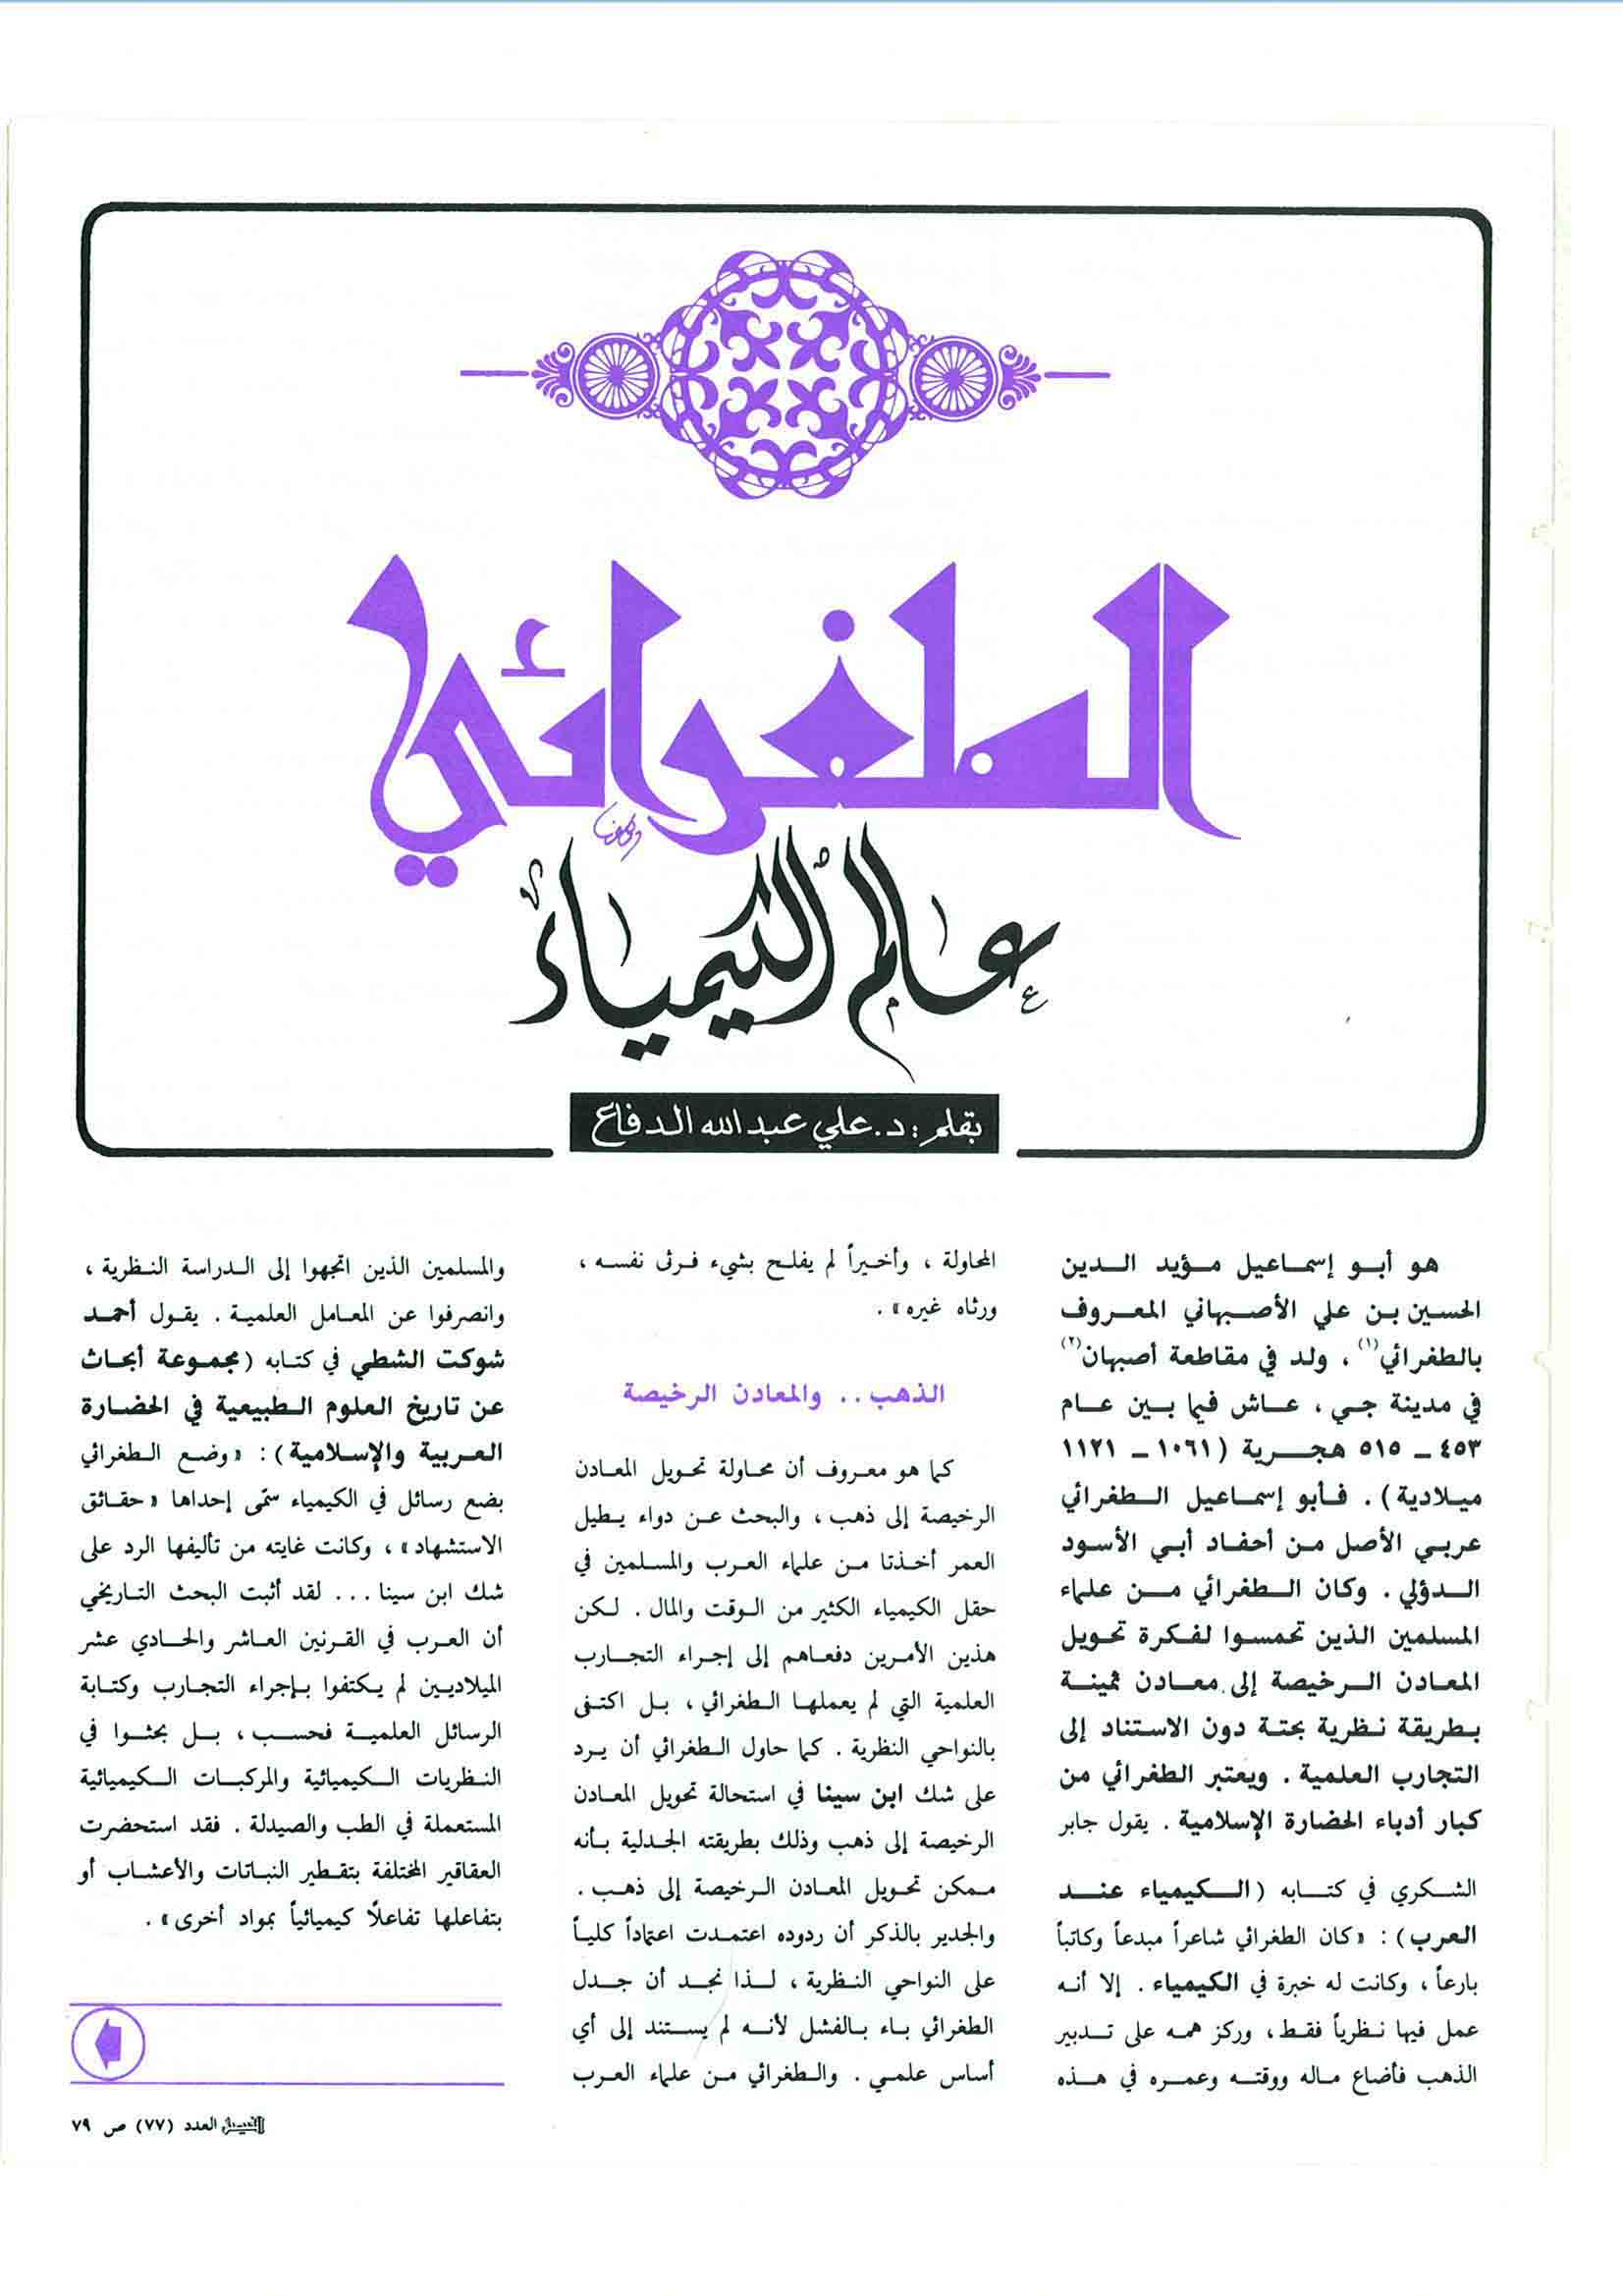 الطغرائي
عالم الكيمياء
بقلم : د. علي عبدالله الدفاع
هو أبو إسماعيل مؤيد الدين
الحسين بن علي الأصبهاني المعروف
بالطغرائي(١) ، ولد في مقاطعة أصبهان(٢)
في مدينة جي ، عاش فيما بين عام
٤٥٣ ـ ٥١٥ هجرية (١٠٦١ ـ ١١٢١
ميلادية) . فأبو إسماعيل الطغرائي
عربي الأصل من أحفاد أبي الأسود
الدؤلي . وكان الطغرائي من علماء
المسلمين الذين تحمسوا لفكرة تحويل
المعادن الرخيصة إلى معادن ثمينة
بطريقة نظرية بحتة دون الاستناد إلى
التجارب العلمية . ويعتبر الطغرائي من
كبار أدباء الحضارة الإسلامية . يقول جابر
الشكري في كتابه (الكيمياء عند
العرب) : «كان الطغرائي شاعراً مبدعاً وكاتباً
بارعاً ، وكانت له خبرة في الكيمياء . إلا أنه
عمل فيها نظرياً فقط ، وركز همه على تدبير
الذهب فأضاع ماله ووقته وعمره في هذه
المحاولة ، وأخيراً لم يفلح بشيء فرثى نفسه ،
ورثاه غيره» .
الذهب .. والمعادن الرخيصة
كما هو معروف أن محاولة تحويل المعادن
الرخيصة إلى ذهب ، والبحث عن دواء يطيل
العمر أخذتا من علماء العرب والمسلمين في
حقل الكيمياء الكثير من الوقت والمال . لكن
هذين الأمرين دفعاهم إلى إجراء التجارب
العلمية التي لم يعملها الطغرائي ، بل اكتفى
بالنواحي النظرية . كما حاول الطغرائي أن يرد
على شك ابن سينا في استحالة تحويل المعادن
الرخيصة إلى ذهب وذلك بطريقته الجدلية بأنه
ممكن تحويل المعادن الرخيصة إلى ذهب .
والجدير بالذكر أن ردوده اعتمدت اعتماداً كلياً
على النواحي النظرية ، لذا نجد أن جدل
الطغرائي باء بالفشل لأنه لم يستند إلى أي
أساس علمي . والطغرائي من علماء العرب
والمسلمين الذين اتجهوا إلى الدراسة النظرية ،
وانصرفوا عن المعامل العلمية . يقول أحمد
شوكت الشطي في كتابه (مجموعة أبحاث
عن تاريخ العلوم الطبيعية في الحضارة
العربية والإسلامية) : «وضع الطغرائي
بضع رسائل في الكيمياء سمّى إحداها «حقائق
الاستشهاد» ، وكانت غايته من تأليفها الرد على
شك ابن سينا ... لقد أثبت البحث التاريخي
أن العرب في القرنين العاشر والحادي عشر
الميلاديين لم يكتفوا بإجراء التجارب وكتابة
الرسائل العلمية فحسب ، بل بحثوا في
النظريات الكيميائية والمركبات الكيميائية
المستعملة في الطب والصيدلة . فقد استحضرت
العقاقير المختلفة بتقطير النباتات والأعشاب أو
بتفاعلها تفاعلاً كيميائياً بمواد أخرى» .
الفيصل العدد (٧٧) ص ٧٩